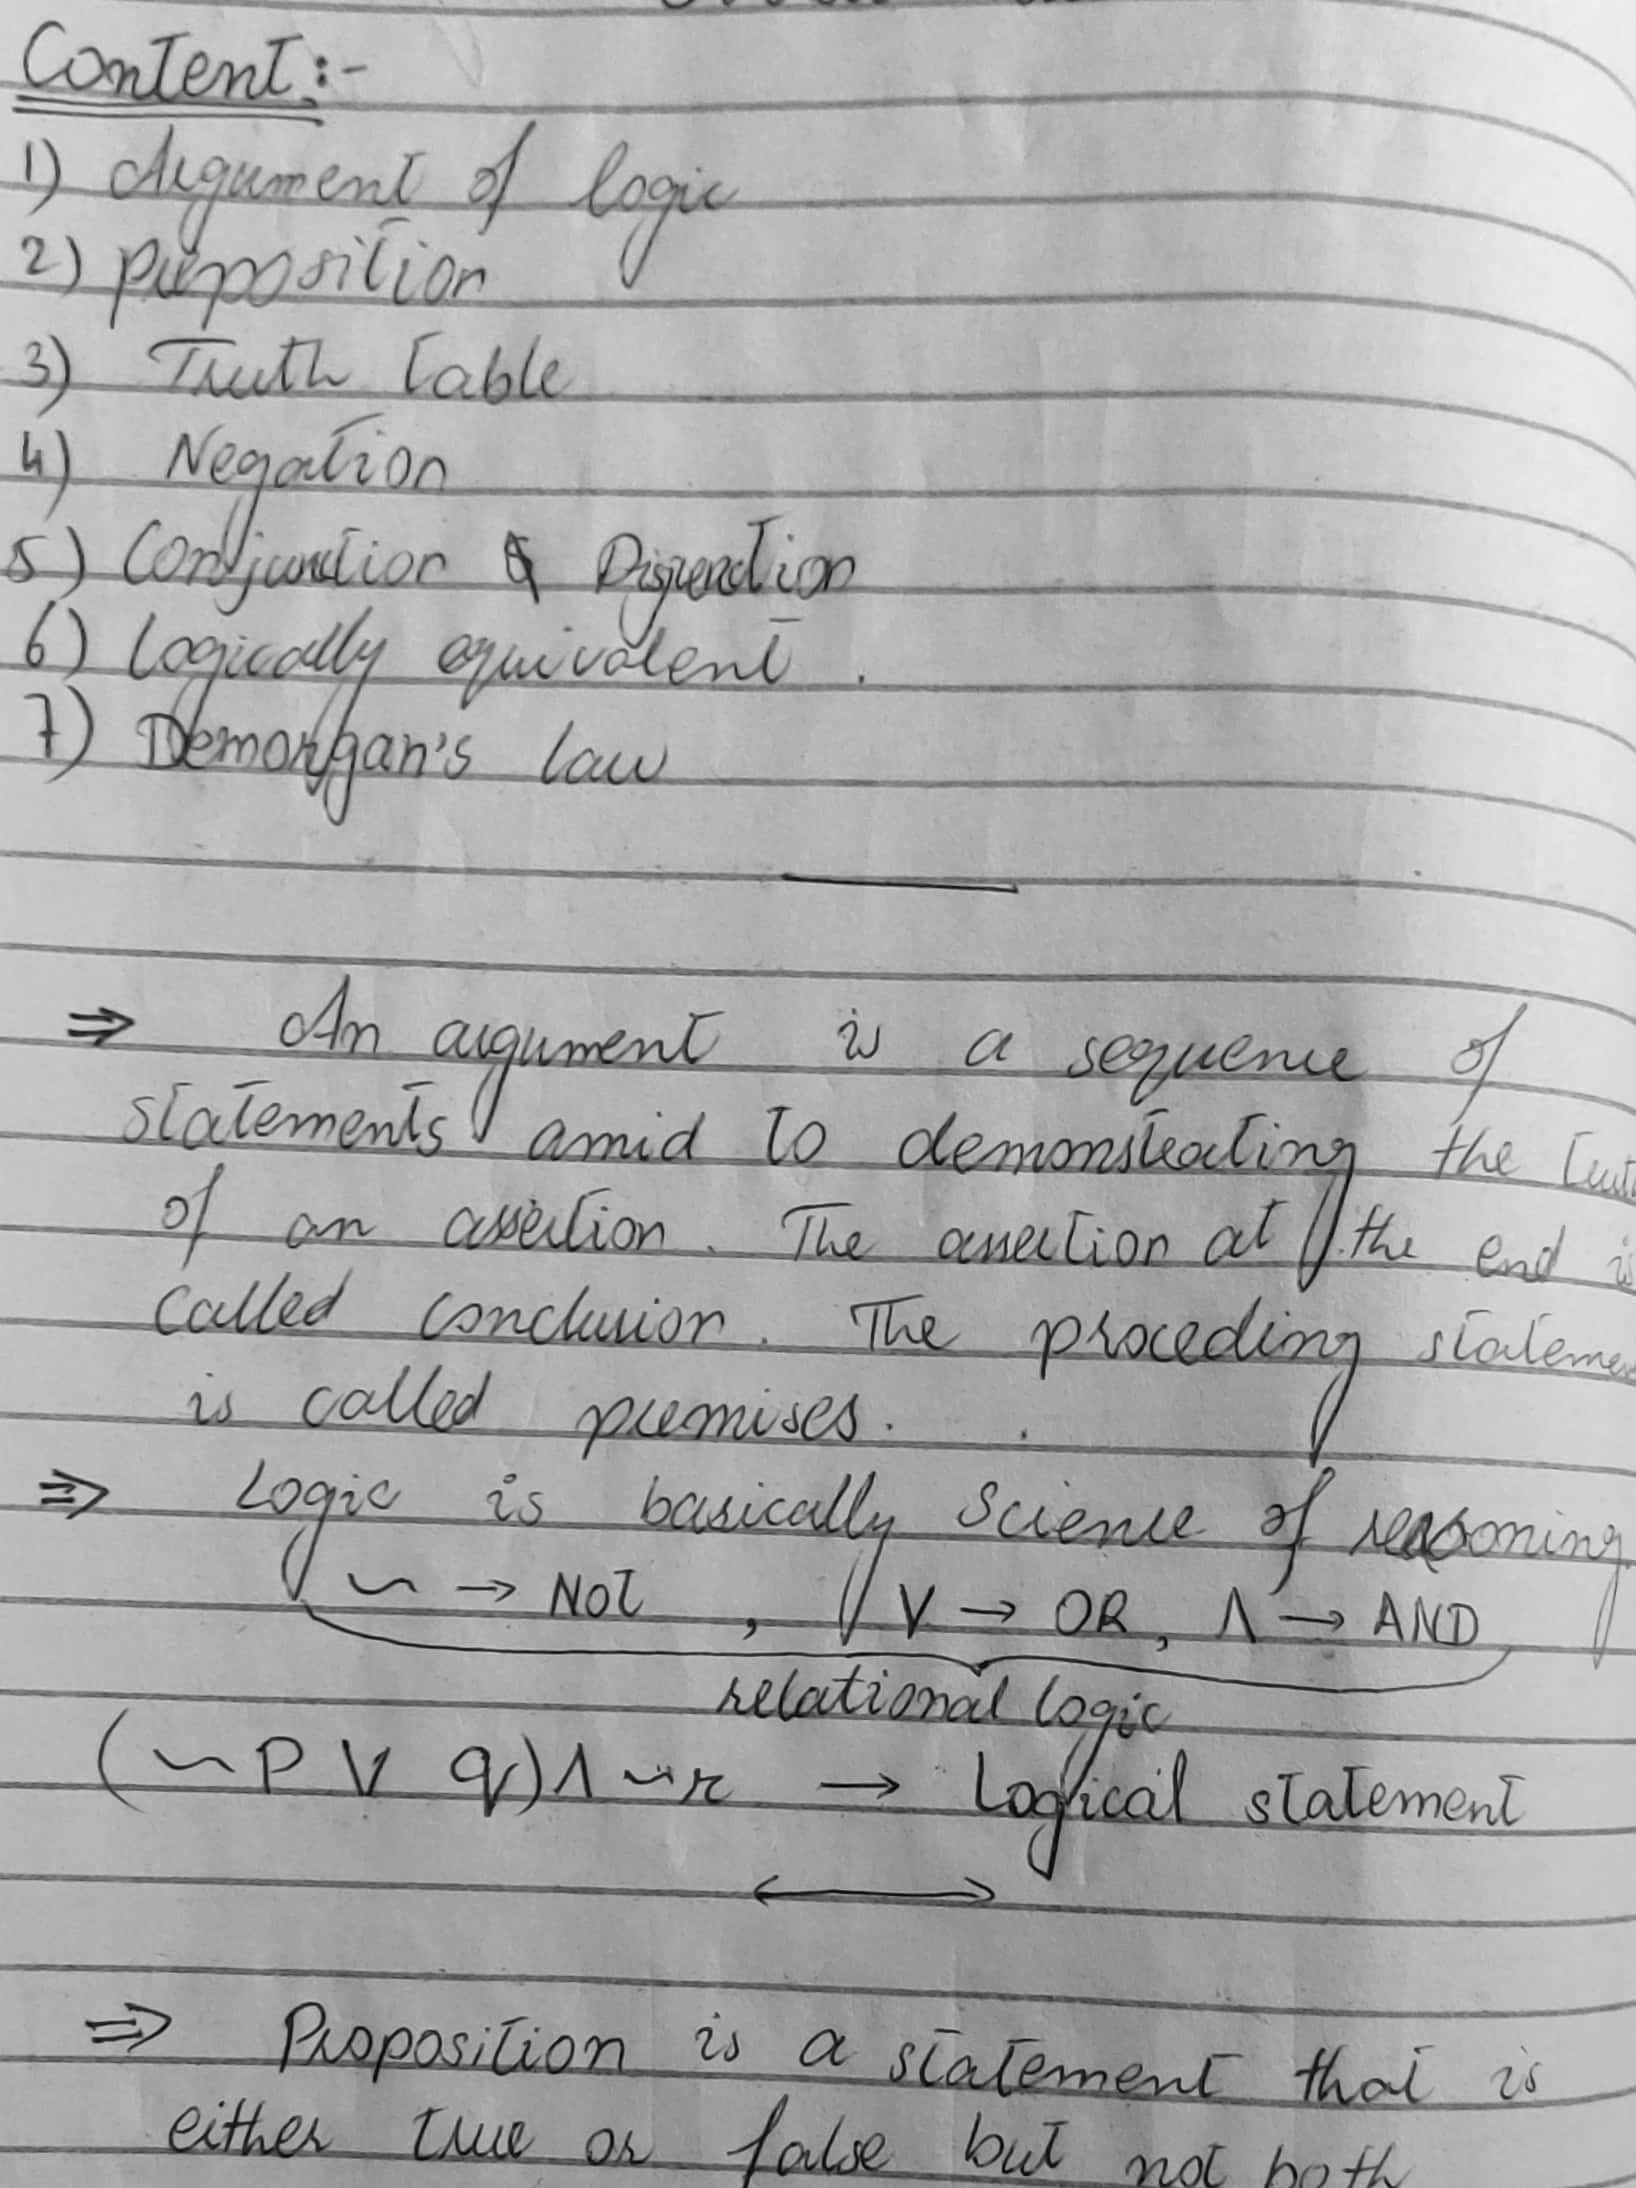 Content:-
1) Argument of logic
2) Preposition
3) Truth table
4) Negation
5) Conjunction & Disjunction
6) Logically equivalent.
7) Demorgan's law
⇒ An argument is a sequence of
statements amid to demonstrating the trut
of an assertion. The assertion at the end is
called conclusion. The proceding stateme
is called premises.
⇒ Logic is basically Science of reasoning
~ → Not , V → OR, Λ → AND
relational logic
(~P V q) Λ ~r → Logical statement
⇒ Proposition is a statement that is
either true or false but not both